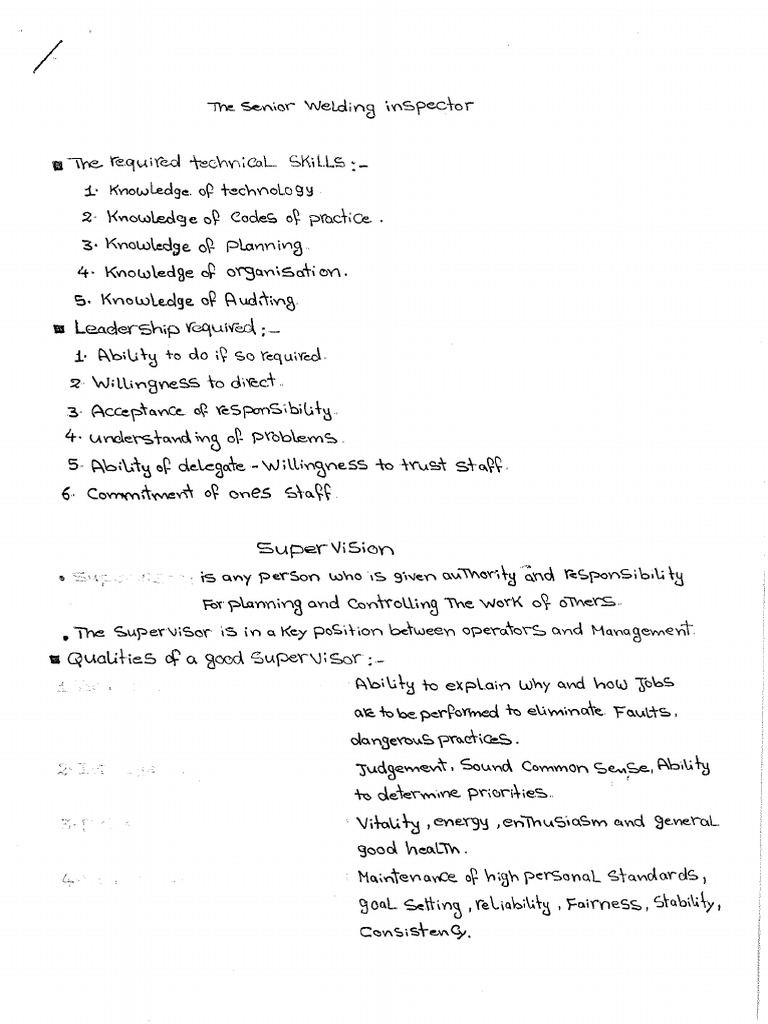 The Senior Welding inspector
The required technical skills :-
1. Knowledge of technology
2. Knowledge of Codes of practice .
3. Knowledge of planning.
4. Knowledge of organisation.
5. Knowledge of Auditing.
Leadership required :-
1. Ability to do if so required.
2. Willingness to direct.
3. Acceptance of responsibility.
4. understanding of problems.
5. Ability of delegate - Willingness to trust staff.
6. Commitment of ones staff.
Supervision
is any person who is given authority and responsibility
For planning and controlling The work of others.
• The supervisor is in a key position between operators and Management.
Qualities of a good supervisor :-
1 Ability to explain why and how Jobs
are to be performed to eliminate Faults,
dangerous practices.
2. Judgement, Sound Common Sense, Ability
to determine priorities.
3. Vitality, energy, enthusiasm and general
good health.
4. Maintenance of high personal standards,
goal setting, reliability, Fairness, Stability,
Consistency.